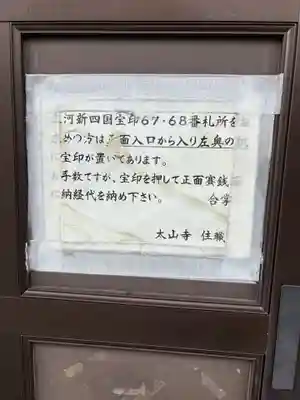 河新四国宝印67・68番札所を
めの方は 面入口から入り左奥の
宝印が置いてあります。
手数ですが、宝印を押して正面賽銭
納経代を納め下さい。
太山寺 住職